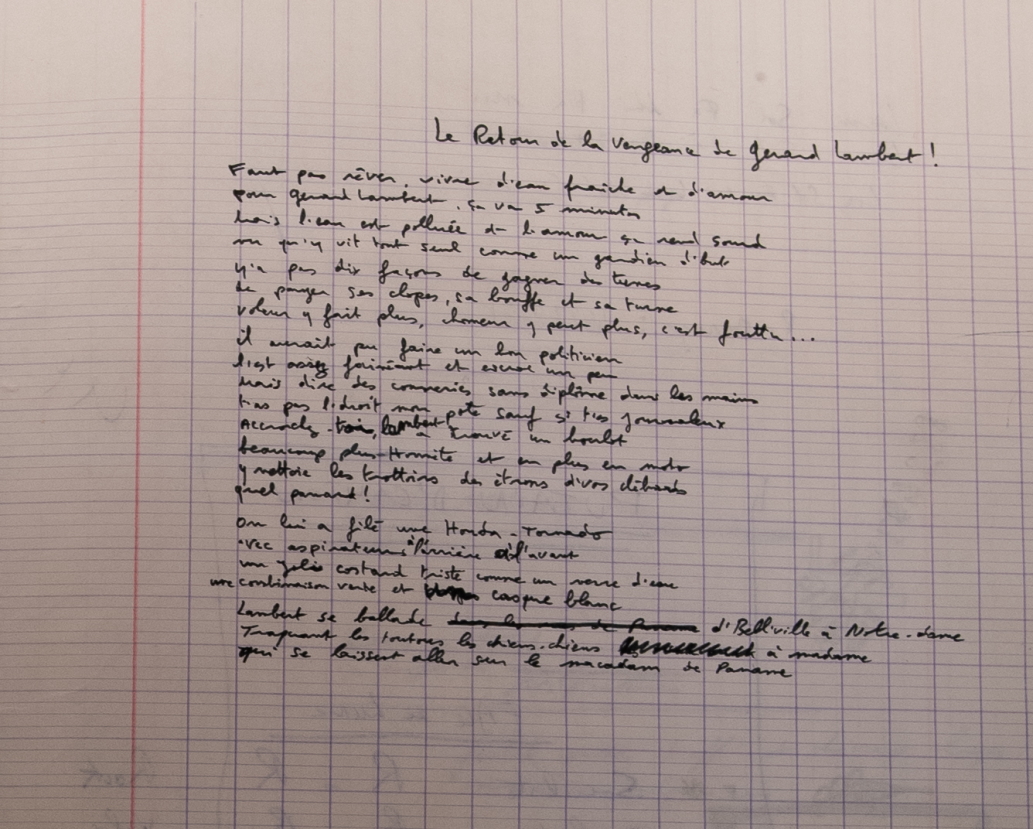 Le Retour de la vengeance de Gérard Lambert !
Faut pas rêver, vivre d'eau fraîche et d'amour
pour Gérard Lambert, ça va 5 minutes
mais l'eau est polluée et l'amour ça rend sourd
vu qu'y vit tout seul comme un gardien d'but
y'a pas dix façons de gagner des tunes
de payer ses clopes, sa bouffe et sa turne
voleur y fait plus, chômeur y peut plus, c'est fouttu...
il aurait pu faire un bon politicien
l'est assez fainéant et escroc un peu
mais dire des conneries sans diplôme dans les mains
t'as pas l'droit mon pote sauf si t'es journaleux
Accroche-toi, Lambert a trouvé un boulot
beaucoup plus honnête et en plus en moto
y nettoie les trottoirs des étrons d'vos clébards
quel panard !
On lui a filé une Honda-Tornado
avec aspirateurs à l'arrière à l'avant
un joli costard triste comme un verre d'eau
une combinaison verte et casque blanc
Lambert se ballade d'Belleville à Notre-dame
Traquant les toutous les chiens-chiens à madame
qui se laissent aller sur le macadam de Paname